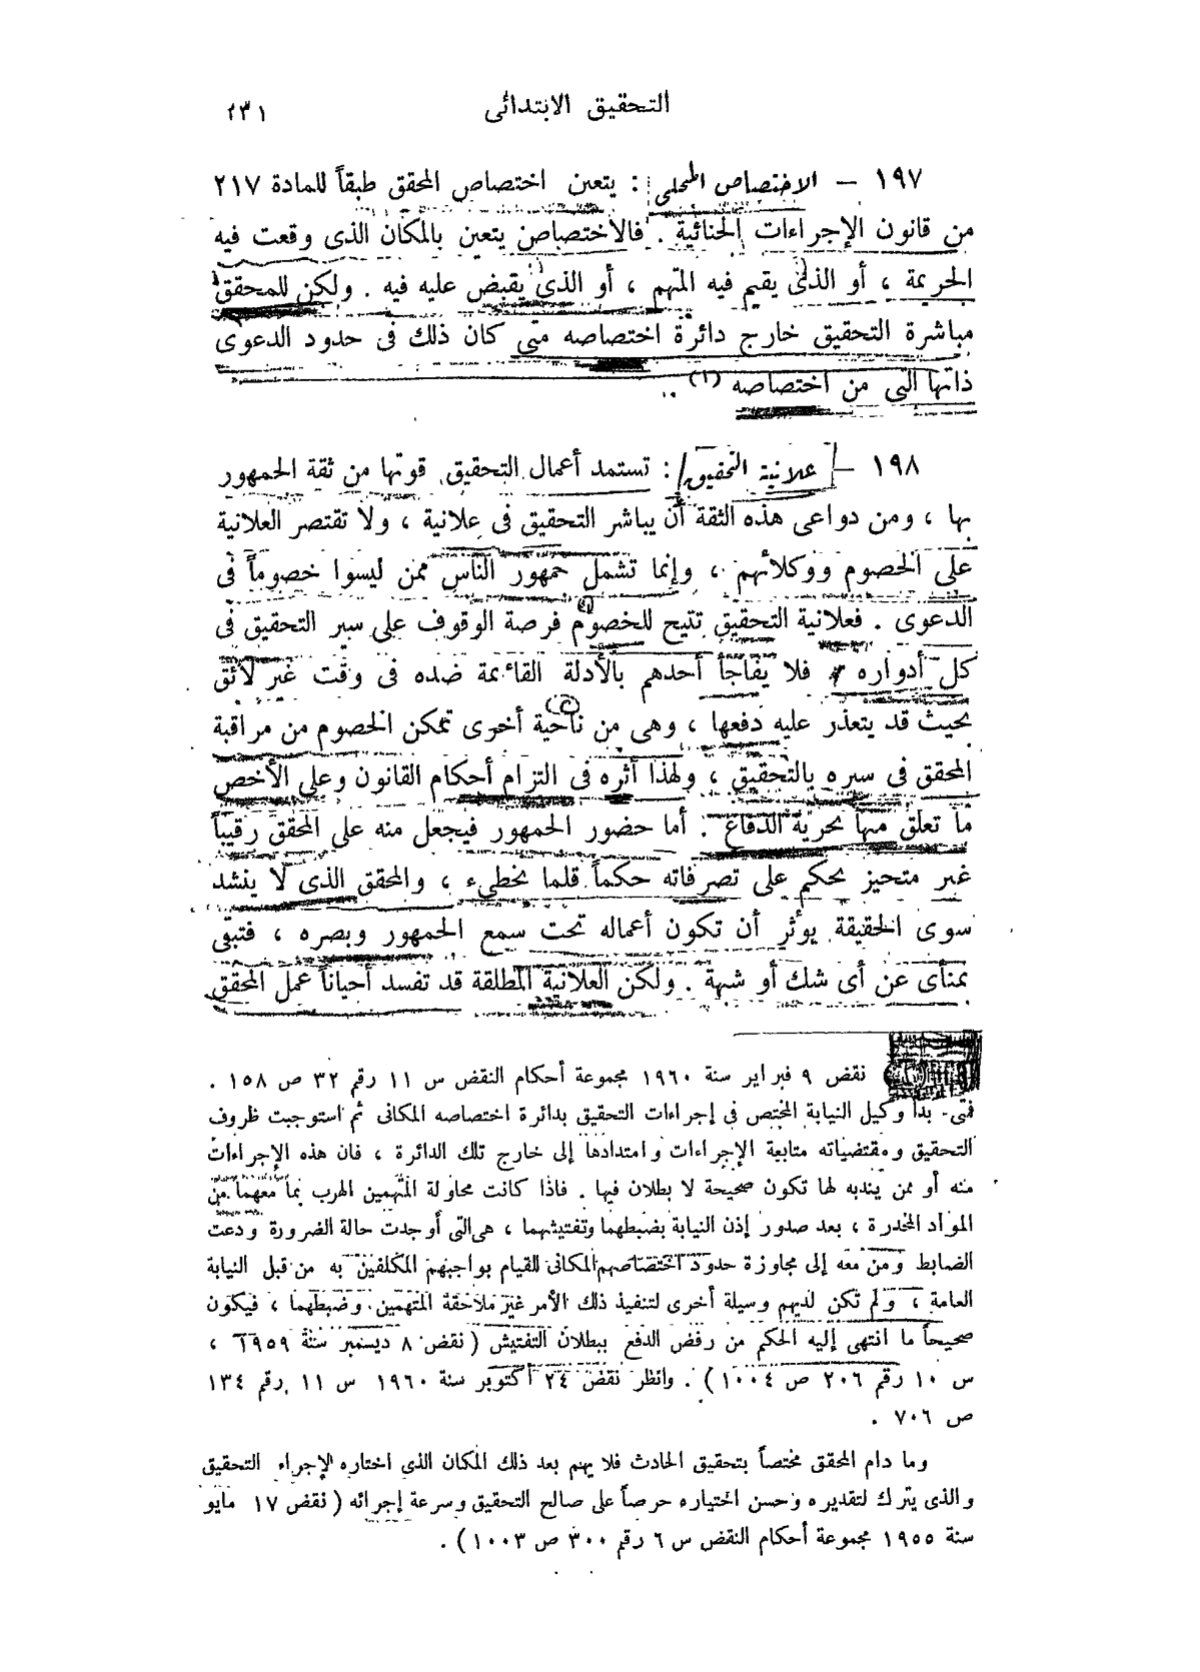 التحقيق الابتدائى
٢٣١
١٩٧ – الاختصاص المحلى : يتعين اختصاص المحقق طبقاً للمادة ٢١٧
من قانون الإجراءات الجنائية . فالاختصاص يتعين بالمكان الذى وقعت فيه
الجريمة ، أو الذى يقيم فيه المتهم ، أو الذى يقبض عليه فيه . ولكن للمحقق
مباشرة التحقيق خارج دائرة اختصاصه متى كان ذلك فى حدود الدعوى
ذاتها التى من اختصاصه (١) .
١٩٨ – علانية التحقيق : تستمد أعمال التحقيق قوتها من ثقة الجمهور
بها ، ومن دواعى هذه الثقة أن يباشر التحقيق فى علانية ، ولا تقتصر العلانية
على الخصوم ووكلائهم ، وإنما تشمل جمهور الناس ممن ليسوا خصوماً فى
الدعوى . فعلانية التحقيق تتيح للخصوم فرصة الوقوف على سير التحقيق فى
كل أدواره فلا يفاجأ أحدهم بالأدلة القائمة ضده فى وقت غير لائق
بحيث قد يتعذر عليه دفعها ، وهى من ناحية أخرى تمكن الخصوم من مراقبة
المحقق فى سيره بالتحقيق ، ولهذا أثره فى التزام أحكام القانون وعلى الأخص
ما تعلق منها بحرية الدفاع . أما حضور الجمهور فيجعل منه على المحقق رقيباً
غير متحيز يحكم على تصرفاته حكماً قلما يخطىء ، والمحقق الذى لا ينشد
سوى الحقيقة يؤثر أن تكون أعماله تحت سمع الجمهور وبصره ، فتبقى
بمنأى عن أى شك أو شبهة . ولكن العلانية المطلقة قد تفسد أحياناً عمل المحقق
نقض ٩ فبراير سنة ١٩٦٠ مجموعة أحكام النقض س ١١ رقم ٣٢ ص ١٥٨ .
فمتى بدأ وكيل النيابة المختص فى إجراءات التحقيق بدائرة اختصاصه المكانى ثم استوجبت ظروف
التحقيق ومقتضياته متابعة الإجراءات وامتدادها إلى خارج تلك الدائرة ، فان هذه الإجراءات
منه أو ممن يندبه لها تكون صحيحة لا بطلان فيها . فاذا كانت محاولة المتهمين الهرب بما معهما من
المواد المخدرة ، بعد صدور إذن النيابة بضبطهما وتفتيشهما ، هى التى أوجدت حالة الضرورة ودعت
الضابط ومن معه إلى مجاوزة حدود اختصاصهم المكانى للقيام بواجبهم المكلفين به من قبل النيابة
العامة ، ولم تكن لديهم وسيلة أخرى لتنفيذ ذلك الأمر غير ملاحقة المتهمين وضبطهما ، فيكون
صحيحاً ما انتهى إليه الحكم من رفض الدفع ببطلان التفتيش ( نقض ٨ ديسمبر سنة ١٩٥٩ ،
س ١٠ رقم ٢٠٦ ص ١٠٠٤ ) . وانظر نقض ٢٤ أكتوبر سنة ١٩٦٠ س ١١ رقم ١٣٤
ص ٧٠٦ .
وما دام المحقق مختصاً بتحقيق الحادث فلا يهم بعد ذلك المكان الذى اختاره لإجراء التحقيق
والذى يترك لتقديره وحسن اختياره حرصاً على صالح التحقيق وسرعة إجرائه ( نقض ١٧ مايو
سنة ١٩٥٥ مجموعة أحكام النقض س ٦ رقم ٣٠٠ ص ١٠٠٣ ) .